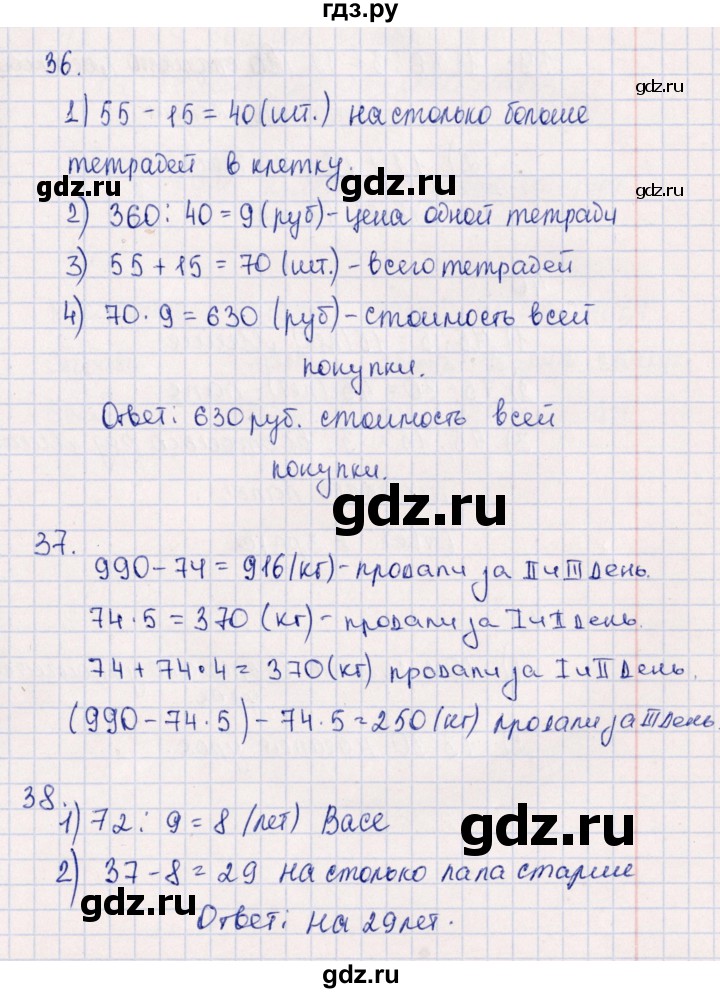 гдз.ру
36.
1) 55 - 15 = 40 (шт.) на столько больше
тетрадей в клетку.
2) 360 : 40 = 9 (руб) - цена одной тетради
3) 55 + 15 = 70 (шт.) - всего тетрадей
4) 70 · 9 = 630 (руб) - стоимость всей
покупки.
Ответ: 630 руб. стоимость всей
покупки.
37.
990 - 74 = 916 (кг) - продали за II и III день.
74 · 5 = 370 (кг) - продали за I и II день.
74 + 74 · 4 = 370 (кг) продали за I и II день.
(990 - 74 · 5) - 74 · 5 = 250 (кг) продали за III день.
38.
1) 72 : 9 = 8 (лет) Васе
2) 37 - 8 = 29 на столько папа старше
Ответ: на 29 лет.
gdz.ru
gdz.ru
gdz.ru
gdz.ru
gdz.ru
gdz.ru
gdz.ru
gdz.ru
gdz.ru